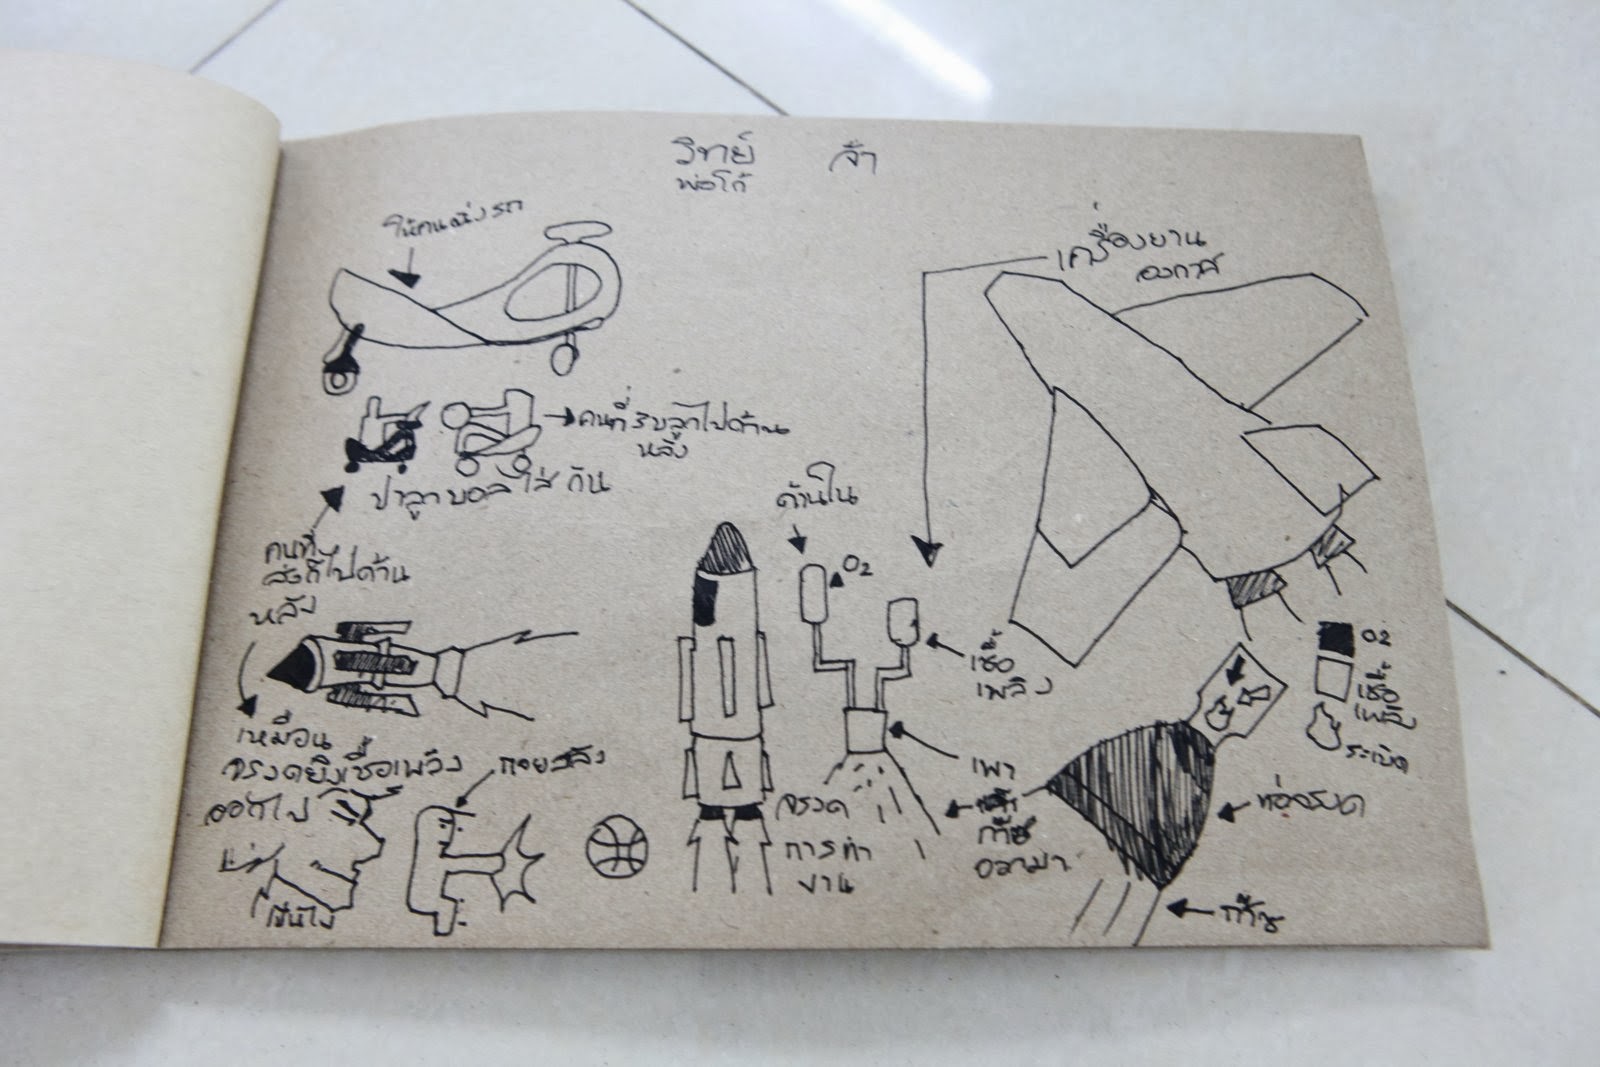 วิทย์ จ้า
พ่อโก้
ให้คนนั่งรถ
เครื่องยาน
อวกาศ
คนที่รับลูกไปด้าน
หลัง
ปาลูกบอลใส่กัน
คนที่
ส่งก็ไปด้าน
หลัง
ด้านใน
O2
เชื้อ
เพลิง
เผา
ก๊าซ
ออกมา
จรวด
การทำ
งาน
เหมือน
จรวดยิงเชื้อเพลิง
ออกไป
เป็นไง
O2
เชื้อ
เพลิง
ระเบิด
ท่อจรวด
ก๊าซ